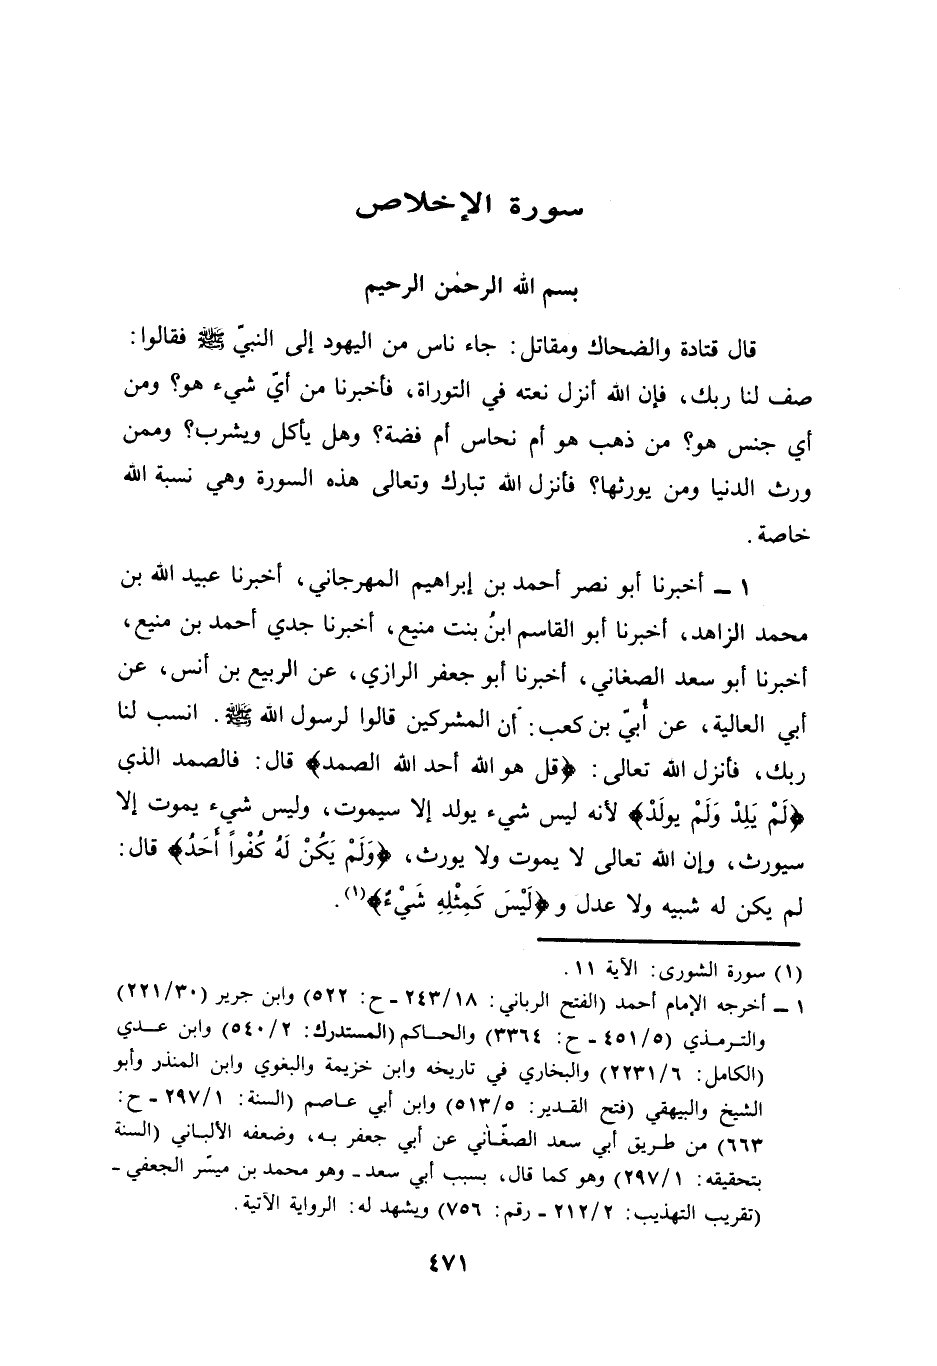 سورة الإخلاص
بسم الله الرحمٰن الرحيم
قال قتادة والضحاك ومقاتل: جاء ناس من اليهود إلى النبيّ ﷺ فقالوا:
صف لنا ربك، فإن الله أنزل نعته في التوراة، فأخبرنا من أيّ شيء هو؟ ومن
أي جنس هو؟ من ذهب هو أم نحاس أم فضة؟ وهل يأكل ويشرب؟ وممن
ورث الدنيا ومن يورثها؟ فأنزل الله تبارك وتعالى هذه السورة وهي نسبة الله
خاصة.
١ ـ أخبرنا أبو نصر أحمد بن إبراهيم المهرجاني، أخبرنا عبيد الله بن
محمد الزاهد، أخبرنا أبو القاسم ابنُ بنت منيع، أخبرنا جدي أحمد بن منيع،
أخبرنا أبو سعد الصغاني، أخبرنا أبو جعفر الرازي، عن الربيع بن أنس، عن
أبي العالية، عن أُبيّ بن كعب: أن المشركين قالوا لرسول الله ﷺ. انسب لنا
ربك، فأنزل الله تعالى: ﴿قل هو الله أحد الله الصمد﴾ قال: فالصمد الذي
﴿لَمْ يَلِدْ وَلَمْ يولَدْ﴾ لأنه ليس شيء يولد إلا سيموت، وليس شيء يموت إلا
سيورث، وإن الله تعالى لا يموت ولا يورث، ﴿وَلَمْ يَكُنْ لَهُ كُفْواً أَحَدُ﴾ قال:
لم يكن له شبيه ولا عدل و ﴿لَيْسَ كَمِثْلِهِ شَيْءٌ﴾(١).
(١) سورة الشورى: الآية ١١.
١ ـ أخرجه الإمام أحمد (الفتح الرباني: ٢٤٣/١٨ ـ ح: ٥٢٢) وابن جرير (٢٢١/٣٠)
والترمذي (٤٥١/٥ ـ ح: ٣٣٦٤) والحاكم (المستدرك: ٥٤٠/٢) وابن عدي
(الكامل: ٢٢٣١/٦) والبخاري في تاريخه وابن خزيمة والبغوي وابن المنذر وأبو
الشيخ والبيهقي (فتح القدير: ٥١٣/٥) وابن أبي عاصم (السنة: ٢٩٧/١ ـ ح:
٦٦٣) من طريق أبي سعد الصغّاني عن أبي جعفر به، وضعفه الألباني (السنة
بتحقيقه: ٢٩٧/١) وهو كما قال، بسبب أبي سعد ـ وهو محمد بن ميسّر الجعفي ـ
(تقريب التهذيب: ٢١٢/٢ ـ رقم: ٧٥٦) ويشهد له: الرواية الآتية.
٤٧١